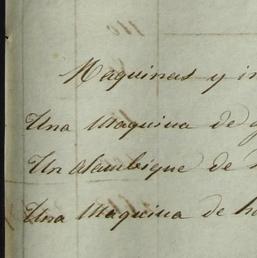 Maquinas y in
Una Maquina de g
Un Alambique de
Una Maquina de ha